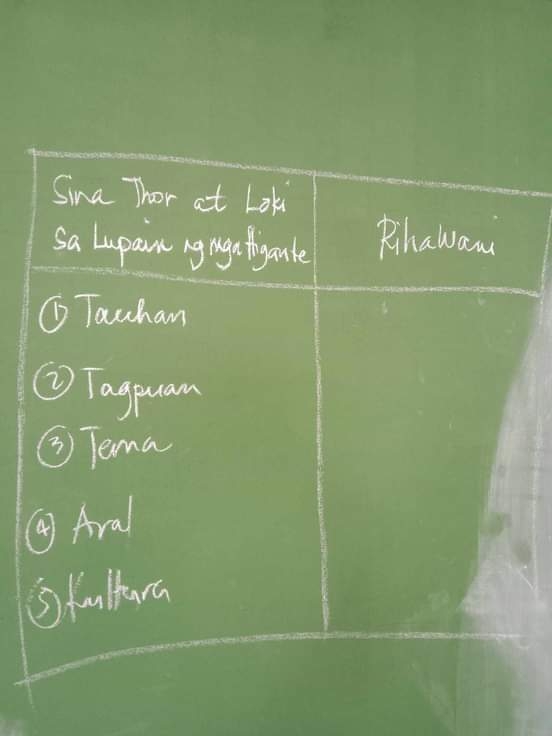 Sina Thor at Loki
sa Lupain ng mga Higante
Rihawani
① Tauhan
② Tagpuan
③ Tema
④ Aral
⑤ Kultura